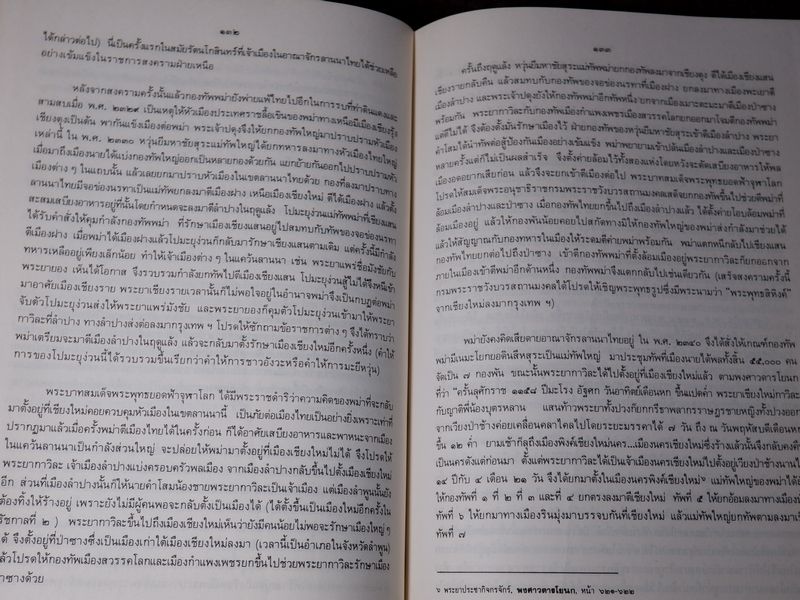 ๑๓๒
ได้กล่าวต่อไป) นี่เป็นครั้งแรกในสมัยรัตนโกสินทร์ที่เจ้าเมืองในอาณาจักรลานนาไทยได้ช่วยเหลือ
อย่างเข้มแข็งในราชการสงครามฝ่ายเหนือ
หลังจากสงครามครั้งนั้นแล้วกองทัพพม่ายังพ่ายแพ้ไทยไปอีกในการรบที่ท่าดินแดงและ
สามสบเมื่อ พ.ศ. ๒๓๒๙ เป็นเหตุให้หัวเมืองประเทศราชชื้อเขินของพม่าทางเหนือมีเมืองเชียงรุ้ง
เชียงตุงเป็นต้น พากันแข็งเมืองต่อพม่า พระเจ้าปดุงจึงให้ยกกองทัพใหญ่มาปราบปรามหัวเมือง
เหล่านี้ ใน พ.ศ. ๒๓๓๐ หวุ่นยีมหาชัยสุระแม่ทัพใหญ่ได้ยกทหารลงมาทางหัวเมืองไทยใหญ่
เมื่อมาถึงเมืองนายได้แบ่งกองทัพใหญ่ออกเป็นหลายกองด้วยกัน แยกย้ายกันออกไปปราบปรามหัว
เมืองต่าง ๆ ในแถบนั้น แล้วเลยยกมาปราบหัวเมืองในเขตลานนาไทยด้วย กองที่ลงมาปราบทาง
ลานนาไทยมีจอข่องนรทาเป็นแม่ทัพยกลงมาตีเมืองฝาง เหนือเมืองเชียงใหม่ ตีได้เมืองฝาง แล้วตั้ง
สะสมเสบียงอาหารอยู่ที่นั้นโดยกำหนดจะลงมาตีลำปางในฤดูแล้ง โปมะยุง่วนแม่ทัพพม่าที่เชียงแสน
ได้รับคำสั่งให้คุมกำลังกองทัพพม่า ที่รักษาเมืองเชียงแสนอยู่ไปสมทบกับกองทัพของจอข่องนรทา
ตีเมืองฝาง เมื่อพม่าได้เมืองฝางแล้วโปมะยุง่วนก็กลับมารักษาเชียงแสนตามเดิม แต่ครั้งนี้มีกำลัง
ทหารเหลืออยู่เพียงเล็กน้อย ทำให้เจ้าเมืองต่าง ๆ ในแคว้นลานนา เช่น พระยาแพร่ชื่อมังชัยกับ
พระยายอง เห็นได้โอกาส จึงรวบรวมกำลังยกทัพไปตีเมืองเชียงแสน โปมะยุง่วนสู้ไม่ได้จึงหนีเข้า
มาอาศัยเมืองเชียงราย พระยาเชียงรายเวลานั้นก็ไม่พอใจอยู่ในอำนาจพม่าจึงเป็นกบฏต่อพม่า
จับตัวโปมะยุง่วนส่งให้พระยาแพร่มังชัย และพระยายองก็คุมตัวโปมะยุง่วนเข้ามาให้พระยา
กาวิละที่ลำปาง ทางลำปางส่งต่อลงมากรุงเทพ ฯ โปรดให้ซักถามข้อราชการต่าง ๆ จึงได้ทราบว่า
พม่าเตรียมจะมาตีเมืองลำปางในฤดูแล้ง แล้วจะกลับมาตั้งรักษาเชียงใหม่อีกครั้งหนึ่ง (คำให้
การของโปมะยุง่วนนี้ได้รวบรวมขึ้นเรียกว่าคำให้การชาวอังวะหรือคำให้การมะยีหวุ่น)
พระบาทสมเด็จพระพุทธยอดฟ้าจุฬาโลก ได้มีพระราชดำริว่าความคิดของพม่าที่จะกลับ
มาตั้งอยู่ที่เชียงใหม่คอยควบคุมหัวเมืองในเขตลานนานี้ เป็นภัยต่อเมืองไทยเป็นอย่างยิ่งเพราะเท่าที่
ปรากฏมาแล้วเมื่อครั้งพม่าตีเมืองไทยได้ในครั้งก่อน ก็ได้อาศัยเสบียงอาหารและพาหนะจากเมือง
ในแคว้นลานนาเป็นกำลังส่วนใหญ่ จะปล่อยให้พม่ามาตั้งอยู่ที่เชียงใหม่ไม่ได้ จึงโปรดให้
พระยากาวิละ เจ้าเมืองลำปางแบ่งครอบครัวพลเมือง จากเมืองลำปางกลับขึ้นไปตั้งเมืองเชียงใหม่
อีก ส่วนที่เมืองลำปางนั้นก็ให้นายคำโสมน้องชายพระยากาวิละเป็นเจ้าเมือง แต่เมืองลำพูนนั้นยัง
ต้องทิ้งให้ร้างอยู่ เพราะยังไม่มีผู้คนพอจะกลับตั้งเป็นเมืองได้ (ได้ตั้งขึ้นเป็นเมืองใหม่อีกครั้งใน
รัชกาลที่ ๒ ) พระยากาวิละขึ้นไปถึงเมืองเชียงใหม่เห็นว่ายังมีคนน้อยไม่พอจะรักษาเมืองใหญ่ ๆ
ได้ จึงตั้งอยู่ที่ป่าซางซึ่งเป็นเมืองเก่าใต้เมืองเชียงใหม่ลงมา (เวลานี้เป็นอำเภอในจังหวัดลำพูน)
แล้วโปรดให้กองทัพเมืองสวรรคโลกและเมืองกำแพงเพชรยกขึ้นไปช่วยพระยากาวิละรักษาเมือง
ป่าซางด้วย
๑๓๓
ครั้นถึงฤดูแล้ง หวุ่นยีมหาชัยสุระแม่ทัพพม่ายกกองทัพลงมาจากเชียงตุง ตีได้เมืองเชียงแสน
เชียงรายกลับคืน แล้วสมทบกับกองทัพของจอข่องนรทาที่เมืองฝาง ยกลงมาทางเมืองพะเยาตี
เมืองลำปาง และพระเจ้าปดุงยังให้กองทัพพม่าอีกทัพหนึ่ง ยกจากเมืองเมาะตะมะมาตีเมืองป่าซาง
พร้อมกัน พระยากาวิละกับกองทัพเมืองกำแพงเพชรเมืองสวรรคโลกยกออกมาโจมตีกองทัพพม่า
แต่ตีไม่ได้ จึงต้องตั้งมั่นรักษาเมืองไว้ ฝ่ายกองทัพของหวุ่นยีมหาชัยสุระเข้าตีเมืองลำปาง พระยา
คำโสมได้นำทัพต่อสู้ป้องกันเมืองอย่างเข้มแข็ง พม่าพยายามเข้าปล้นเมืองลำปางและเมืองป่าซาง
หลายครั้งแต่ก็ไม่เป็นผลสำเร็จ จึงตั้งค่ายล้อมไว้ทั้งสองแห่งโดยหวังจะตัดเสบียงอาหารให้พล
เมืองอดอยากเสียก่อน แล้วจึงจะยกเข้าตีเมืองต่อไป พระบาทสมเด็จพระพุทธยอดฟ้าจุฬาโลก
โปรดให้สมเด็จพระอนุชาธิราชกรมพระราชวังบวรสถานมงคลเสด็จยกกองทัพขึ้นไปช่วยตีพม่าที่
ล้อมเมืองลำปางและป่าซาง เมื่อกองทัพไทยยกขึ้นไปถึงเมืองลำปางแล้ว ได้ตั้งค่ายโอบล้อมพม่าที่
ล้อมเมืองอยู่ แล้วให้กองพันน้อยคอยไปสกัดทางมิให้กองทัพใหญ่ของพม่าส่งกำลังมาช่วยได้
แล้วให้สัญญาณกับกองทหารในเมืองให้ระดมตีค่ายพม่าพร้อมกัน พม่าแตกหนีกลับไปเชียงแสน
กองทัพไทยยกต่อไปถึงป่าซาง เข้าตีกองทัพพม่าที่ตั้งล้อมเมืองอยู่พระยากาวิละก็ยกออกจาก
ภายในเมืองเข้าตีพม่าอีกด้านหนึ่ง กองทัพพม่าจึงแตกกลับไปเช่นเดียวกัน (เสร็จสงครามครั้งนี้
กรมพระราชวังบวรสถานมงคลได้โปรดให้เชิญพระพุทธรูปซึ่งมีพระนามว่า "พระพุทธสิหิงค์"
จากเชียงใหม่ลงมากรุงเทพ ฯ)
พม่ายังคงคิดเสียดายอาณาจักรลานนาไทยอยู่ ใน พ.ศ. ๒๓๔๐ จึงได้สั่งให้เกณฑ์กองทัพ
พม่ามีเนมะโยกยอดินสีหสุระเป็นแม่ทัพใหญ่ มาประชุมทัพที่เมืองนายได้พลทั้งสิ้น ๕๕,๐๐๐ คน
จัดเป็น ๗ กองพัน ขณะนั้นพระยากาวิละได้ไปตั้งอยู่ที่เมืองเชียงใหม่แล้ว ตามพงศาวดารโยนก
ที่ว่า "ครั้นลุศักราช ๑๑๕๘ ปีมะโรง อัฐศก วันอาทิตย์เดือนหก ขึ้นแปดค่ำ พระยาเชียงใหม่กาวิละ
กับญาติพี่น้องบุตรหลาน แสนท้าวพระยาทั้งปวงก็ยกกรีธาพลากรราษฎรชายหญิงทั้งปวงออก
จากเวียงป่าซ้างค่อยเคลื่อนคลาไคลไปโดยระยะมรรคาได้ ๗ วัน ถึง ณ วันพฤหัสบดีเดือนหก
ขึ้น ๑๒ ค่ำ ยามเช้าก็ลุถึงเมืองพิงค์เชียงใหม่นคร...เมืองนครเชียงใหม่ซึ่งร้างแล้วนั้นจึงกลับคงคืน
เป็นนครดังแต่ก่อนมา ตั้งแต่พระยากาวิละได้เป็นเจ้าเมืองนครเชียงใหม่ไปตั้งอยู่เวียงป่าซ้างนานได้
๑๔ ปีกับ ๔ เดือน ๒๑ วัน จึงได้ยกมาตั้งในนครพิงค์เชียงใหม่๖ แม่ทัพใหญ่ของพม่าได้จัด
ให้กองทัพที่ ๑ ที่ ๒ ที่ ๓ และที่ ๔ ยกตรงลงมาตีเชียงใหม่ ทัพที่ ๕ ให้ยกอ้อมลงมาทางเมืองปาย
ทัพที่ ๖ ให้ยกมาทางเมืองรินมุ่งมาบรรจบกันที่เชียงใหม่ แล้วแม่ทัพใหญ่ยกทัพตามลงมาเป็น
ทัพที่ ๗
๖ พระยาประชากิจกรจักร์, พงศาวดารโยนก, หน้า ๖๒๑-๖๒๒